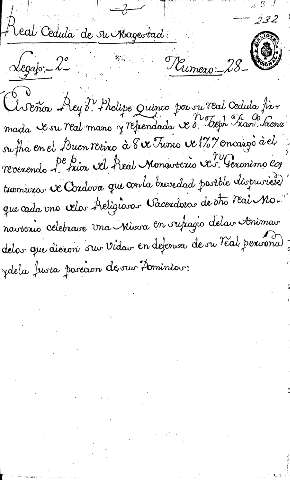 2
232
Real Cedula de su Magestad:
Legajo: 2º Numero 28.
El Señor Rey Dn. Phelipe Quinto por su real Cedula fir-
mada de su real mano y refrendada de Dn.
su fha en el Buen retiro à 8 de Junio de 1707 encargò à el
reverendo Pe. Prior del Real Monasterio de Sn. Geronimo ex-
tramuros de Cordova que con la brevedad posible dispusiese
que cada uno de los Religiosos Sacerdotes de dho real Mo-
nasterio celebrase una Missa en sufragio de las Animas
de los que dieron sus vidas en defensa de su real persona
y de la justa posecion de sus Dominios: